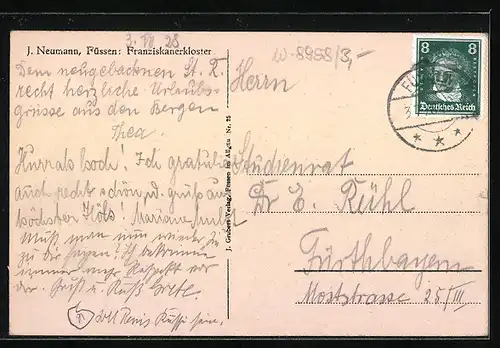 J. Neumann, Füssen: Franziskanerkloster
3. VII. 28
W-8958/3,-
Dem neugebackenen St. R.
recht herzliche Urlaubs-
grüsse aus den Bergen
Thea.
Hurrah hoch! Ich gratuliere
auch recht schön u. grüß aus
Mariane
Muß man nun wieder Sie
zu Dir sagen! Ich bekomme
immer mehr Respekt vor
dir. Gruß u. Kuß
J. Gruber Verlag, Füssen im Allgäu Nr. 25
8 8
Deutsches Reich
Herrn
Studienrat
Dr E. Rühl
Fürth bayern
Moststrasse 25/III